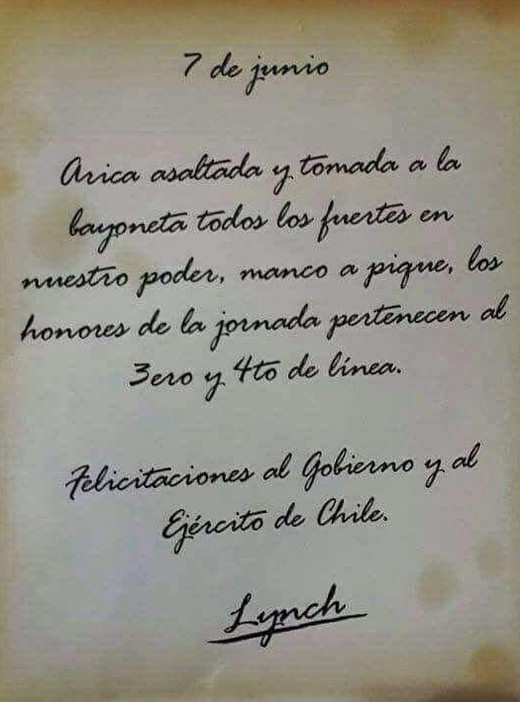 7 de junio
Arica asaltada y tomada a la
bayoneta todos los fuertes en
nuestro poder, manco a pique, los
honores de la jornada pertenecen al
3ero y 4to de línea.
Felicitaciones al Gobierno y al
Ejército de Chile.
Lynch